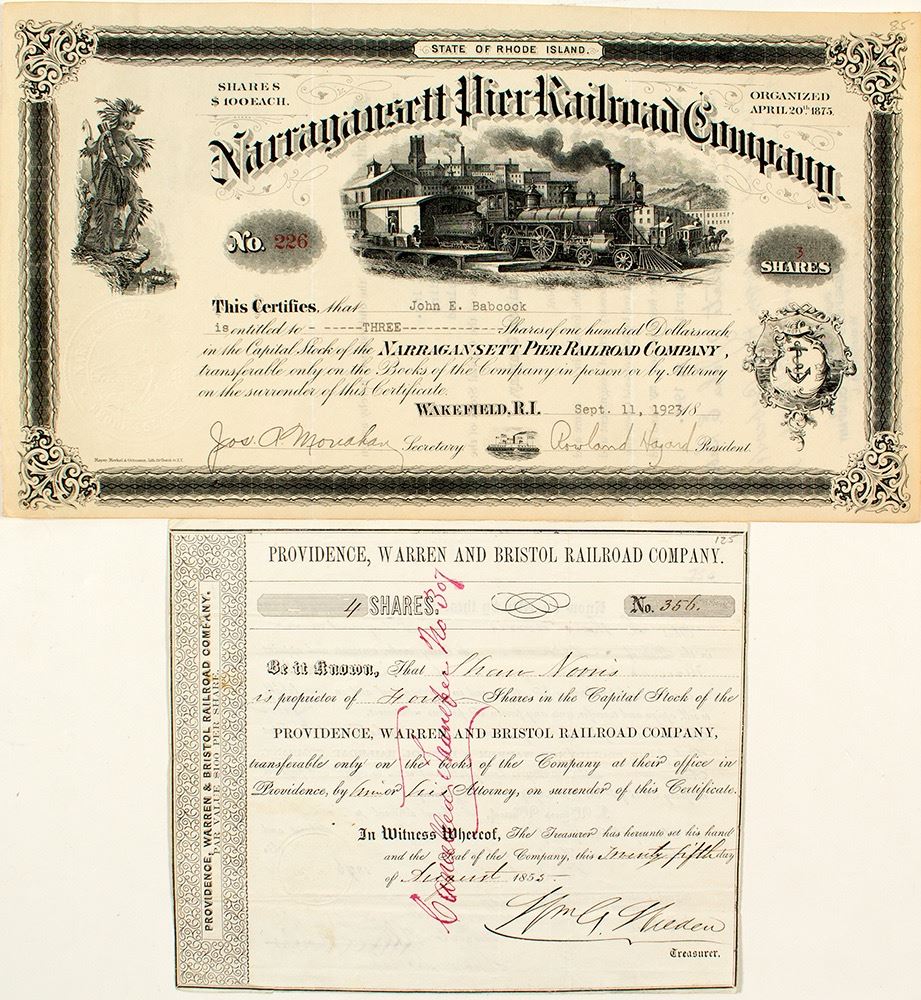 85-
STATE OF RHODE ISLAND.
SHARES
$100 EACH.
ORGANIZED
APRIL 20th 1875.
Narragansett Pier Railroad Company.
No. 226
3
SHARES
This Certifies, that John E. Babcock
is entitled to - -----THREE----------- Shares of one hundred Dollars each
in the Capital Stock of the NARRAGANSETT PIER RAILROAD COMPANY,
transferable only on the Books of the Company in person or by Attorney
on the surrender of this Certificate.
WAKEFIELD, R.I. Sept. 11, 1923/8
Jos. P. Monahan Secretary. Rowland Hazard President.
125
PROVIDENCE, WARREN AND BRISTOL RAILROAD COMPANY.
4 SHARES. No. 356.
Be it Known, That Norris
is proprietor of Four Shares in the Capital Stock of the
PROVIDENCE, WARREN AND BRISTOL RAILROAD COMPANY,
transferable only on the books of the Company at their office in
Providence, by him or his Attorney, on surrender of this Certificate.
In Witness Whereof, The Treasurer has hereunto set his hand
and the Seal of the Company, this twenty fifth day
of August 1855-
Wm G.
Treasurer.
Cancelled Transfer No 307
PROVIDENCE, WARREN & BRISTOL RAILROAD COMPANY.
PAR VALUE $100 PER SHARE.